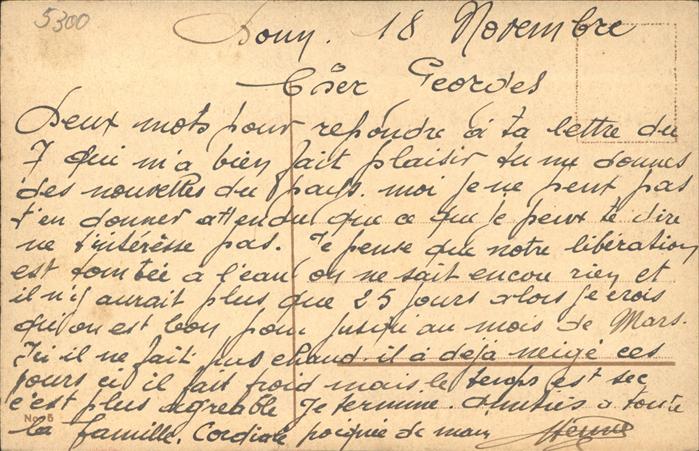 5300
Bonn. 18 Novembre
Cher Georges
Deux mots pour repondre à ta lettre du
7 qui m'a bien fait plaisir tu me donnes
des nouvelles du pays. moi je ne peut pas
t'en donner attendu que ce que je peux te dire
ne t'intérèsse pas. Je pense que notre libération
est tombée a l'eau on ne sait encore rien et
il n'y aurait plus que 25 jours alors je crois
qu'on est bon pour jusqu'au mois de Mars.
Ici il ne fait pas chaud il a déjà neigé ces
jours ci il fait froid mais le temps est sec
c'est plus agreable Je termine. Amitiés a toute
No. 5
la famille. Cordiale poignée de main